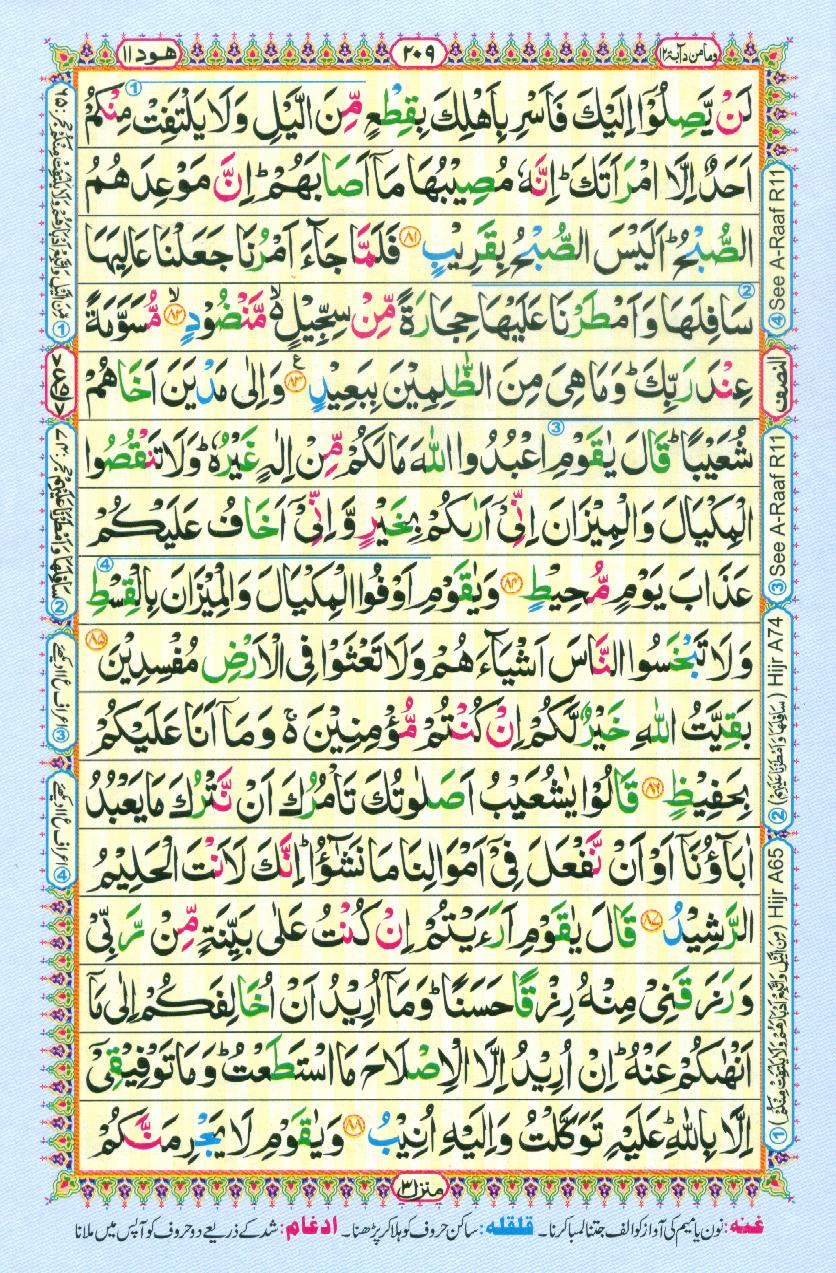 وما من دآبة ١٢
٢٠٩
هود ١١
لَنْ يَّصِلُوْۤا اِلَيْكَ فَاَسْرِ بِاَهْلِكَ بِقِطْعٍ مِّنَ الَّيْلِ وَلَا يَلْتَفِتْ مِنْكُمْ
اَحَدٌ اِلَّا امْرَاَتَكَ ؕ اِنَّهٗ مُصِيْبُهَا مَاۤ اَصَابَهُمْ ؕ اِنَّ مَوْعِدَهُمُ
الصُّبْحُ ؕ اَلَيْسَ الصُّبْحُ بِقَرِيْبٍ ﴿۸۱﴾ فَلَمَّا جَآءَ اَمْرُنَا جَعَلْنَا عَالِيَهَا
سَافِلَهَا وَ اَمْطَرْنَا عَلَيْهَا حِجَارَةً مِّنْ سِجِّيْلٍ ۙ۬ مَّنْضُوْدٍ ﴿ۙ۸۲﴾ مُّسَوَّمَةً
عِنْدَ رَبِّكَ ؕ وَمَا هِيَ مِنَ الظّٰلِمِيْنَ بِبَعِيْدٍ ﴿۸۳﴾ وَ اِلٰى مَدْيَنَ اَخَاهُمْ
شُعَيْبًا ؕ قَالَ يٰقَوْمِ اعْبُدُوا اللّٰهَ مَا لَكُمْ مِّنْ اِلٰهٍ غَيْرُهٗ ؕ وَلَا تَنْقُصُوا
الْمِكْيَالَ وَالْمِيْزَانَ اِنِّيْۤ اَرٰىكُمْ بِخَيْرٍ وَّ اِنِّيْۤ اَخَافُ عَلَيْكُمْ
عَذَابَ يَوْمٍ مُّحِيْطٍ ﴿۸۴﴾ وَيٰقَوْمِ اَوْفُوا الْمِكْيَالَ وَالْمِيْزَانَ بِالْقِسْطِ
وَلَا تَبْخَسُوا النَّاسَ اَشْيَآءَهُمْ وَلَا تَعْثَوْا فِى الْاَرْضِ مُفْسِدِيْنَ ﴿۸۵﴾
بَقِيَّتُ اللّٰهِ خَيْرٌ لَّكُمْ اِنْ كُنْتُمْ مُّؤْمِنِيْنَ ۚ۬ وَمَاۤ اَنَا عَلَيْكُمْ
بِحَفِيْظٍ ﴿۸۶﴾ قَالُوْا يٰشُعَيْبُ اَصَلٰوتُكَ تَاْمُرُكَ اَنْ نَّتْرُكَ مَا يَعْبُدُ
اٰبَآؤُنَاۤ اَوْ اَنْ نَّفْعَلَ فِيْۤ اَمْوَالِنَا مَا نَشٰٓؤُا ؕ اِنَّكَ لَاَنْتَ الْحَلِيْمُ
الرَّشِيْدُ ﴿۸۷﴾ قَالَ يٰقَوْمِ اَرَءَيْتُمْ اِنْ كُنْتُ عَلٰى بَيِّنَةٍ مِّنْ رَّبِّيْ
وَرَزَقَنِيْ مِنْهُ رِزْقًا حَسَنًا ؕ وَمَاۤ اُرِيْدُ اَنْ اُخَالِفَكُمْ اِلٰى مَاۤ
اَنْهٰىكُمْ عَنْهُ ؕ اِنْ اُرِيْدُ اِلَّا الْاِصْلَاحَ مَا اسْتَطَعْتُ ؕ وَمَا تَوْفِيْقِيْۤ
اِلَّا بِاللّٰهِ ؕ عَلَيْهِ تَوَكَّلْتُ وَاِلَيْهِ اُنِيْبُ ﴿۸۸﴾ وَيٰقَوْمِ لَا يَجْرِمَنَّكُمْ
④ See A-Raaf R11
النصف
③ See A-Raaf R11
② (سَافِلَهَا وَاَمْطَرْنَا عَلَيْهِمْ) Hijr A74
① (مِنَ الَّيْلِ وَاتَّبِعْ اَدْبَارَهُمْ وَلَا يَلْتَفِتْ مِنْكُمْ) Hijr A65
منزل ٣
غنہ: نون یا میم کی آواز کو الف جتنا لمبا کرنا۔ قلقلہ: ساکن حروف کو ہلا کر پڑھنا۔ ادغام: شد کے ذریعے دو حروف کو آپس میں ملانا